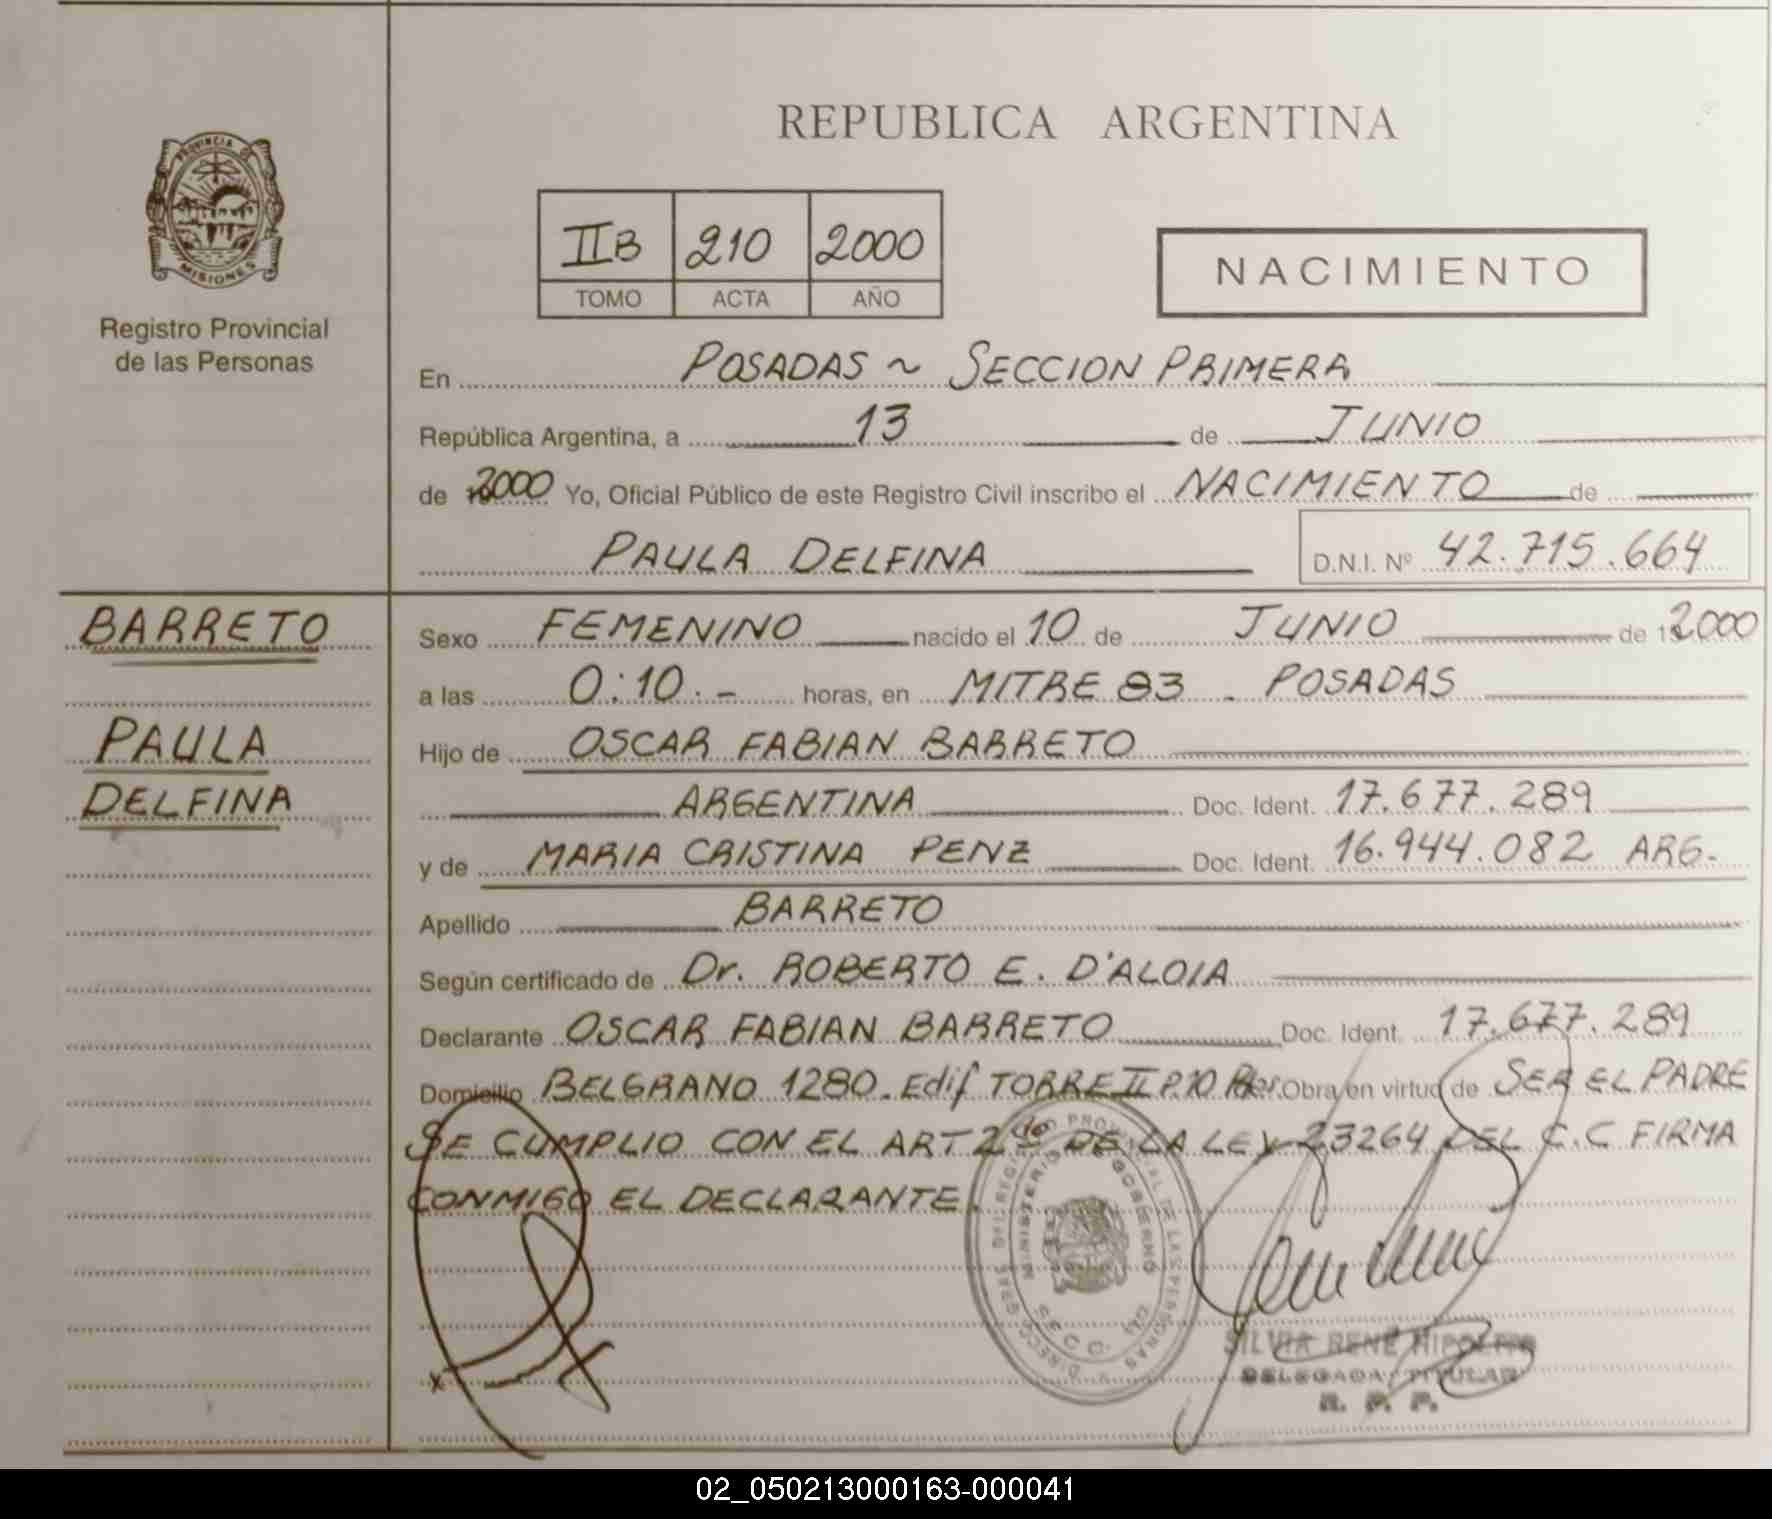 REPUBLICA ARGENTINA
PROVINCIA DE
MISIONES
Registro Provincial
de las Personas
IIB 210 2000
TOMO ACTA AÑO
NACIMIENTO
En POSADAS ~ SECCION PRIMERA
República Argentina, a 13 de JUNIO
de 2000 Yo, Oficial Público de este Registro Civil inscribo el NACIMIENTO de
PAULA DELFINA D.N.I. Nº 42.715.664
BARRETO
PAULA
DELFINA
Sexo FEMENINO nacido el 10 de JUNIO de 2000
a las 0:10.- horas, en MITRE 83 - POSADAS
Hijo de OSCAR FABIAN BARRETO
ARGENTINA Doc. Ident. 17.677.289
y de MARIA CRISTINA PENZ Doc. Ident. 16.944.082 ARG.
Apellido BARRETO
Según certificado de Dr. ROBERTO E. D'ALOIA
Declarante OSCAR FABIAN BARRETO Doc. Ident. 17.677.289
Domicilio BELGRANO 1280. Edif TORRE II P.10 Obra en virtud de SER EL PADRE
SE CUMPLIO CON EL ART 2do DE LA LEY 23264 DEL C.C FIRMA
CONMIGO EL DECLARANTE.
MINISTERIO DE GOBIERNO
SILVIA RENÉ HIPOLITO
DELEGADA TITULAR
R. P. P.
02_050213000163-000041